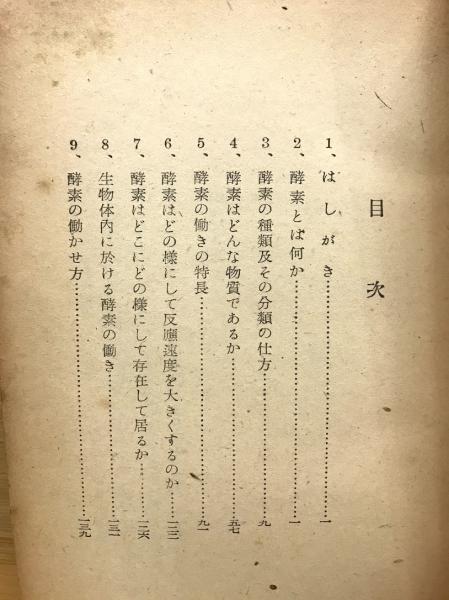 目次
1、はしがき……一
2、酵素とは何か……一
3、酵素の種類及その分類の仕方……九
4、酵素はどんな物質であるか……五七
5、酵素の働きの特長……九一
6、酵素はどの様にして反應速度を大きくするのか……一二三
7、酵素はどこにどの様にして存在して居るか……一二六
8、生物体內に於ける酵素の働き……一三一
9、酵素の働かせ方……一三九